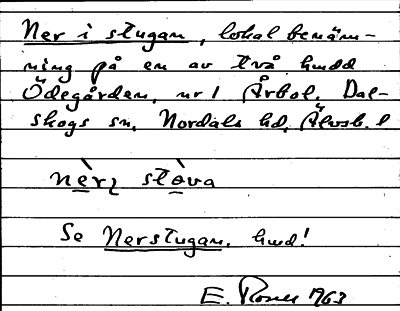 Ner i stugan, lokal benäm-
ning på en av två hmd
Ödegården, nr 1 Årbol, Dal-
skogs sn, Nordals hd, Älvsb. l
nèrɩ stòva
Se Nerstugan, hmd!
E. 1963